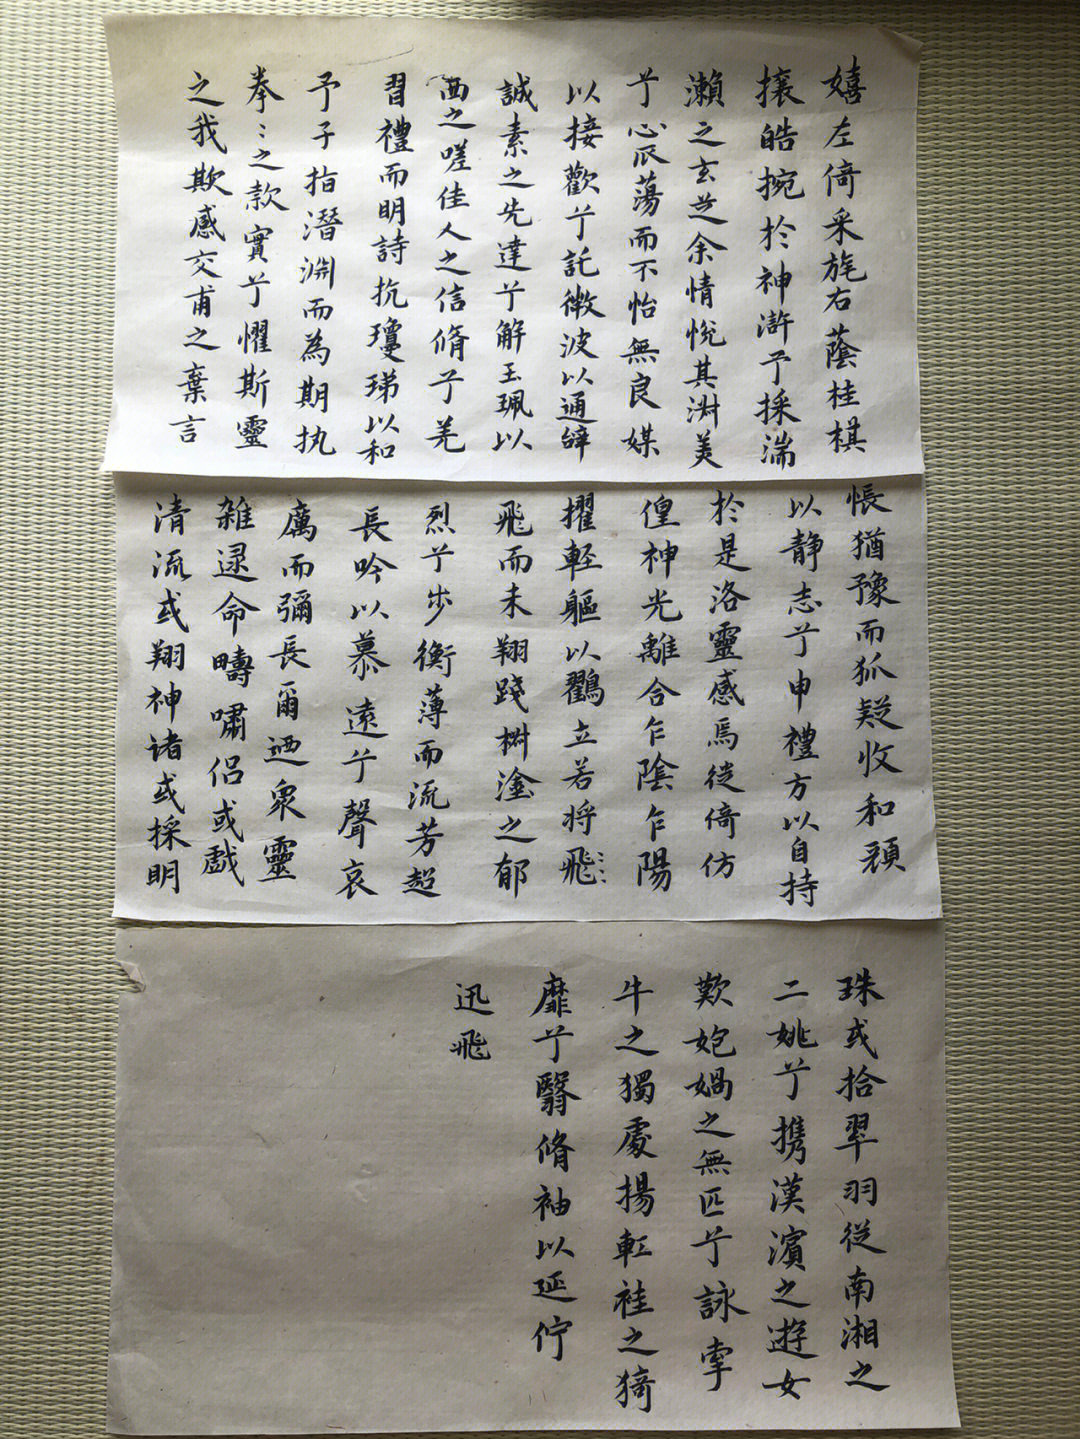 嬉左倚采旄右蔭桂棋
攘皓捥於神滸兮採湍
瀨之玄芝余情悅其淋美
兮心㤆蕩而不怡無良媒
以接歡兮託微波以通辭
誠素之先達兮解玉珮以
西之嗟佳人之信脩兮羌
習禮而明詩抗瓊珶以和
予子指潛淵而為期執
拳〻之款實兮懼斯靈
之我欺感交甫之棄言
悵猶豫而狐疑收和顏
以静志兮申禮方以自持
於是洛靈感焉徙倚仿
偟神光離合乍陰乍陽
擢軽軀以鸖立若将飛〻
飛而未翔踐椒塗之郁
烈兮步衡薄而流芳超
長吟以慕遠兮聲哀
厲而彌長爾迺衆靈
雜逯命疇嘯侶或戯
清流或翔神渚或採明
珠或拾翠羽從南湘之
二姚兮携漢濱之遊女
歎匏媧之無匹兮詠牽
牛之獨處揚軽袿之猗
靡兮翳脩袖以延佇
迅飛